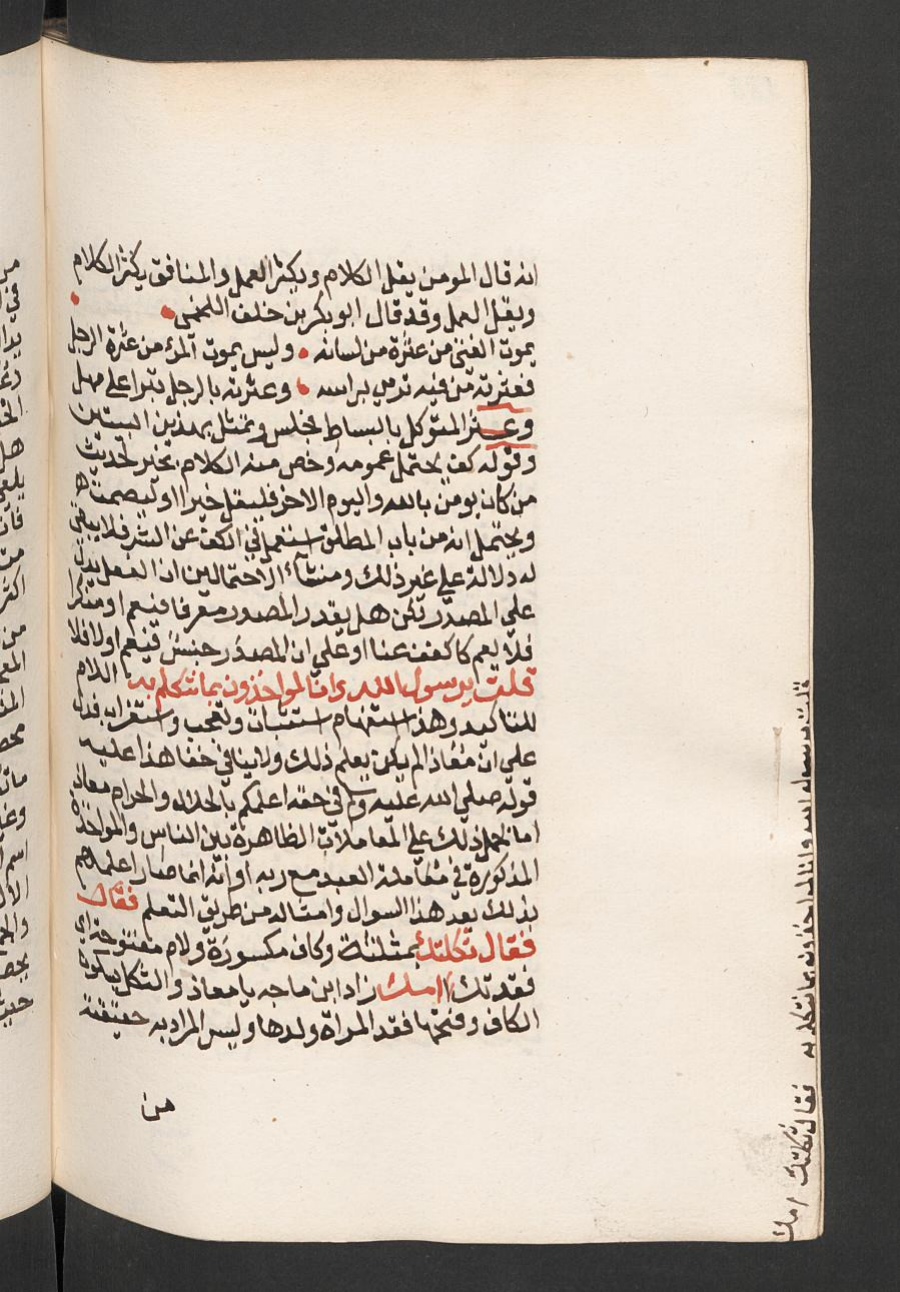 انه قال المومن يقل الكلام ويكثر العمل والمنافق يكثر الكلام
ويقل العمل وقد قال ابو بكر بن خلف اللخمي
يموت الفتى من عثرة من لسانه وليس يموت المرء من عثرة الرجل
فعثرته من فيه ترمي براسه وعثرته بالرجل تبرا على مهل
وعثر المتوكل بالبساط فجلس وتمثل بهذين البيتين
وقوله كف يحتمل عمومه وخص منه الكلام بخير لحديث
من كان يومن بالله واليوم الاخر فليقل خيرا او ليصمت
ويحتمل انه من باب المطلق استعمل في الكف عن الشر فلا يبقى
له دلالة على غير ذلك ومنشأ الاحتمالين ان الفعل يدل
على المصدر لكن هل يقدر المصدر معرفا فيعم او منكرا
فلا يعم كاكفف عنا او على ان المصدر جنس فيعم اولا فلا
قلت يرسول الله وانا لمواخذون بما نتكلم به اللام
للتاكيد وهذا استفهام استثبات وتعجب واستغراب فدل
على ان معاذا لم يكن يعلم ذلك ولا ينافي خفا هذا عليه
قوله صلى الله عليه وسلم في حقه اعلمكم بالحلال والحرام معاذ
اما لحمل ذلك على المعاملات الظاهرة بين الناس والمواخذة
المذكورة في معاملة العبد مع ربه او انه انما صار اعلمهم
بذلك بعد هذا السوال وامثاله من طريق التعلم فقال
فقال ثكلتك بمثلثة وكاف مكسورة ولام مفتوحة اي
فقدتك امك زاد ابن ماجه يا معاذ والثكل بسكون
الكاف وفتحها فقد المراة ولدها وليس المراد به حقيقته
من
قلت يرسول الله وانا لمواخذون بما نتكلم به فقال ثكلتك امك